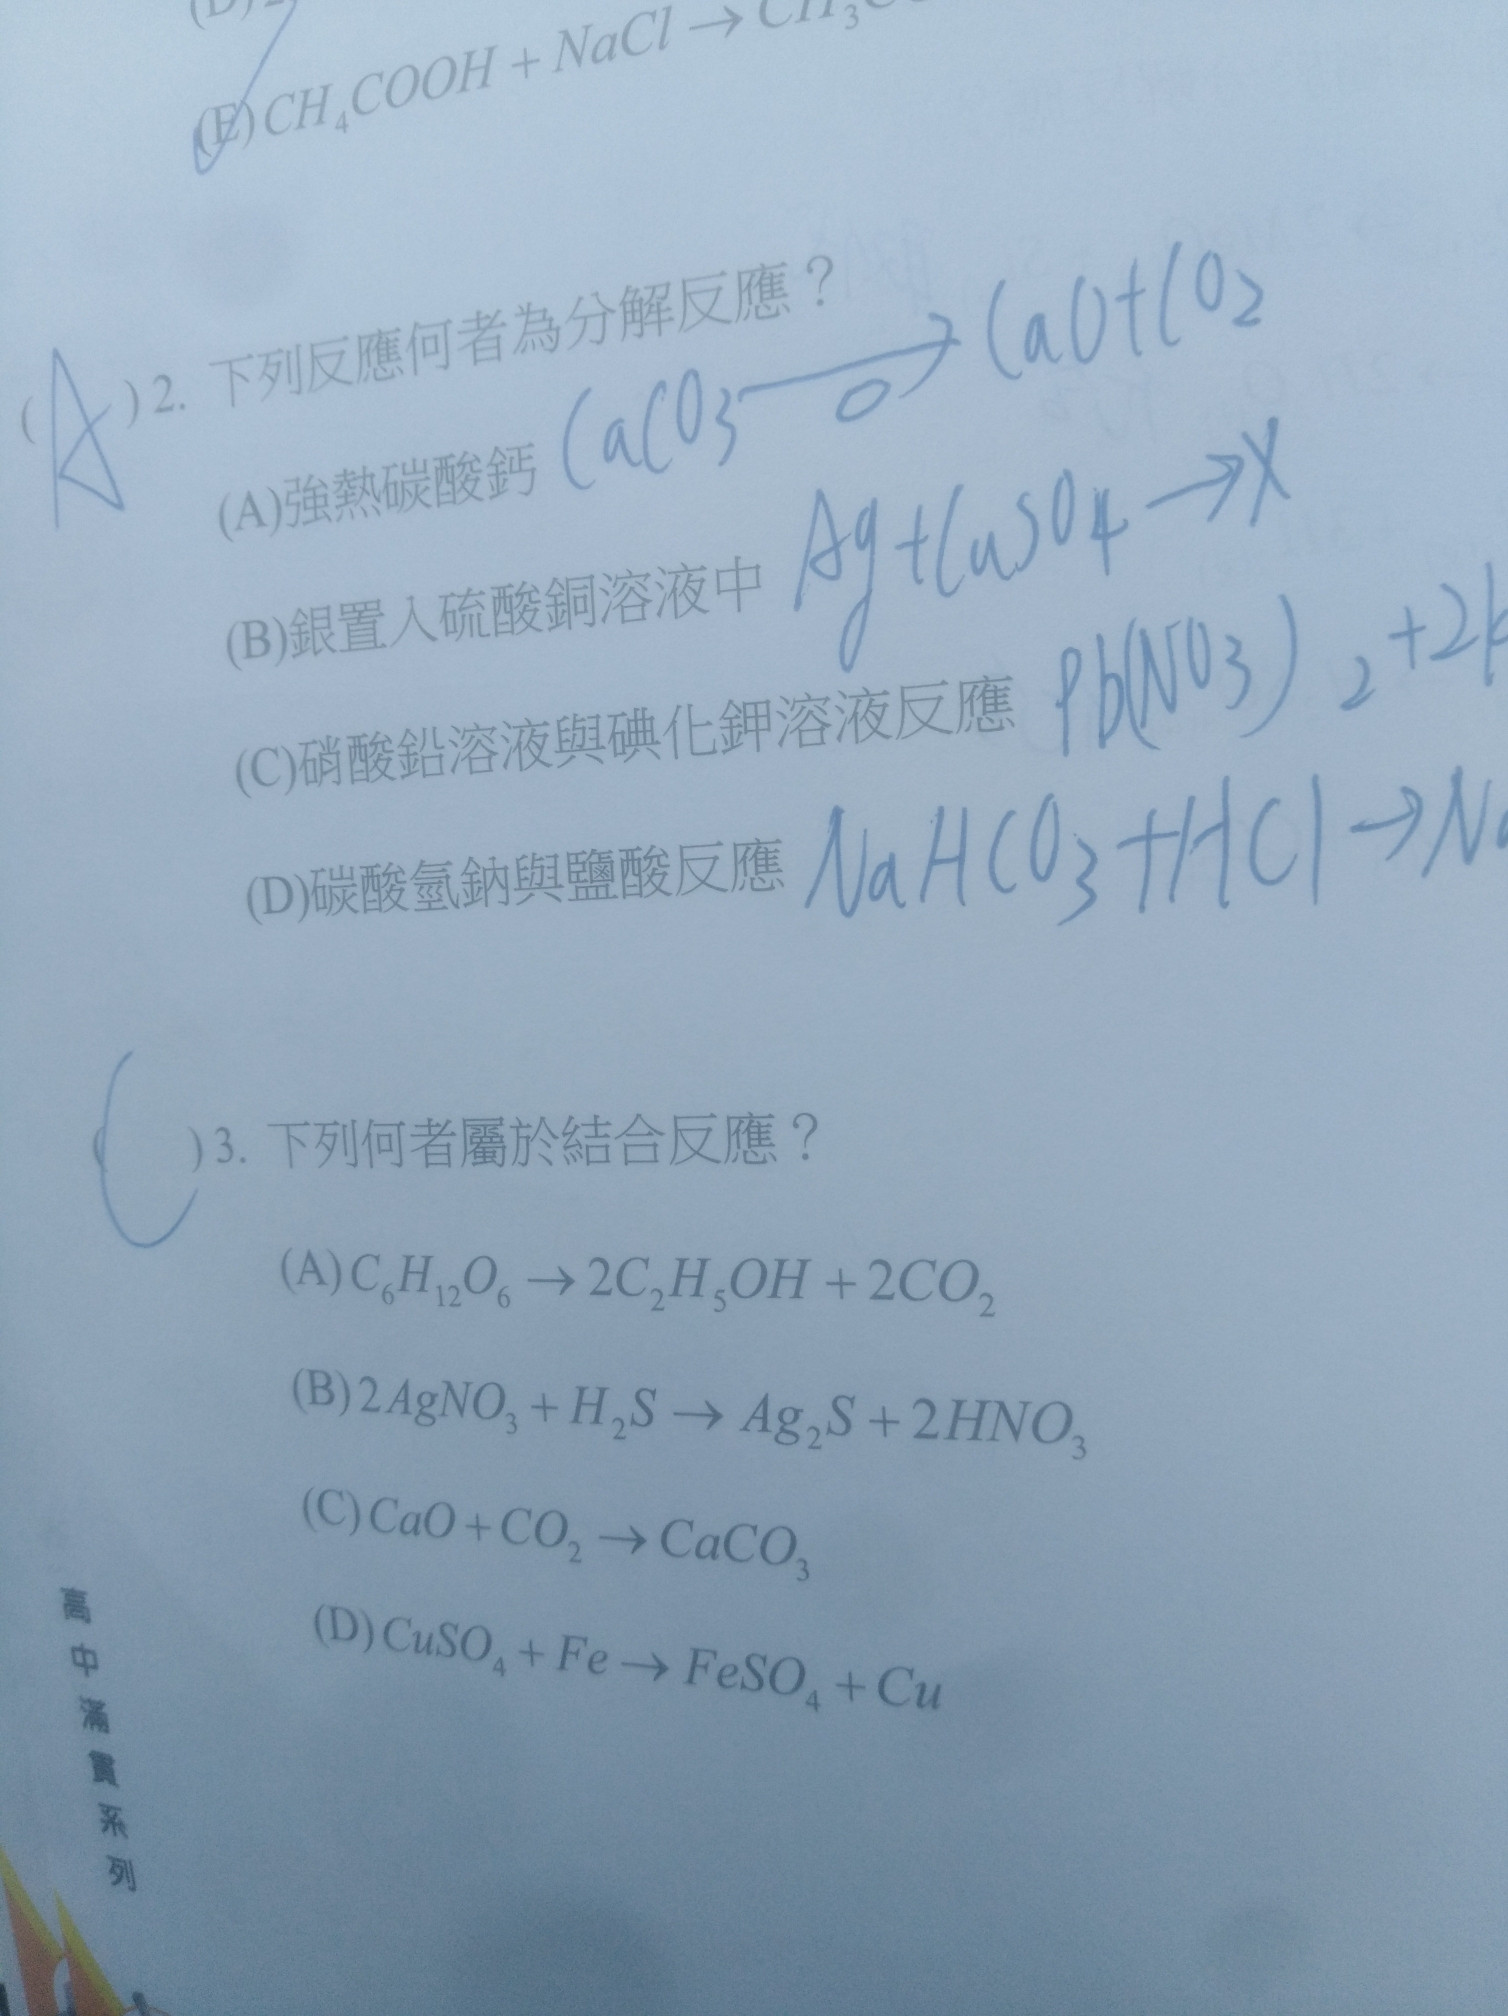 (E)CH₄COOH + NaCl → CH₃
(A)2. 下列反應何者為分解反應？
(A)強熱碳酸鈣 CaCO₃ → CaO+CO₂
(B)銀置入硫酸銅溶液中 Ag+CuSO₄→X
(C)硝酸鉛溶液與碘化鉀溶液反應 Pb(NO₃)₂+2
(D)碳酸氫鈉與鹽酸反應 NaHCO₃+HCl→Na
(C)3. 下列何者屬於結合反應？
(A)C₆H₁₂O₆ → 2C₂H₅OH + 2CO₂
(B)2AgNO₃ + H₂S → Ag₂S + 2HNO₃
(C)CaO + CO₂ → CaCO₃
(D)CuSO₄ + Fe → FeSO₄ + Cu
高中滿貫系列